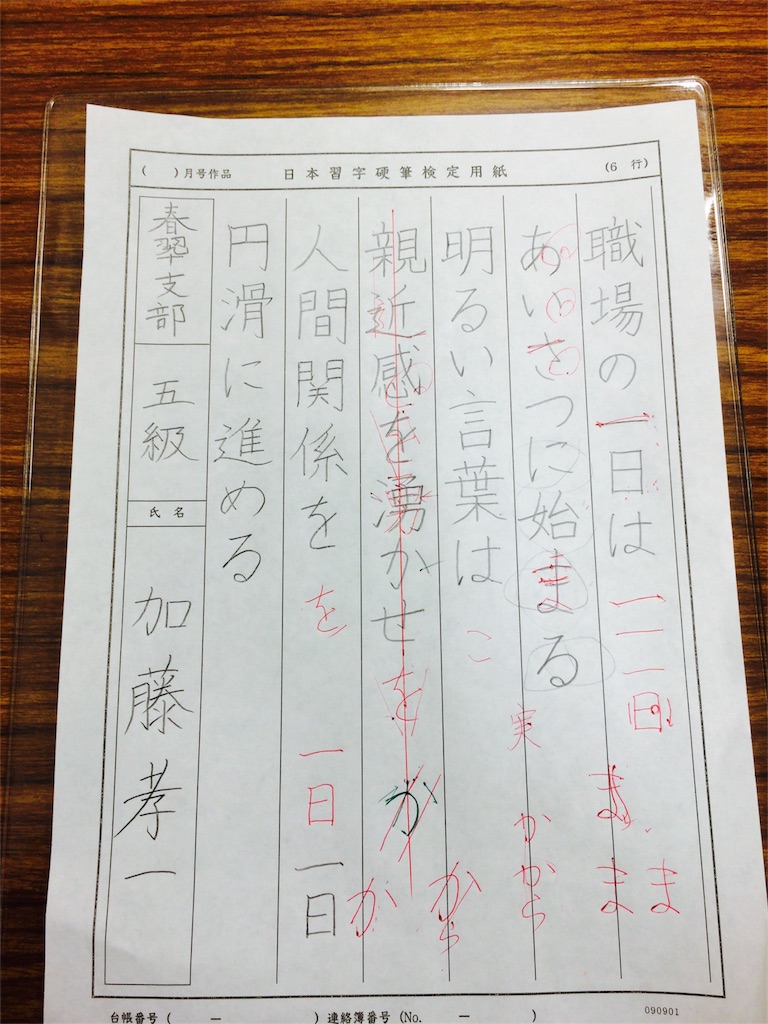 ( )月号作品 日本習字硬筆検定用紙 (6 行)
職場の一日は 一 一 一 日 ま ま ま
あいさつに始まる 実 か から
明るい言葉は こ から
親近感を湧かせ を か か
人間関係を を 一日 一日
円滑に進める
春翠支部 五級
氏名 加藤孝一
台帳番号 ( ー ) 連絡簿番号 (No. ー )
090901